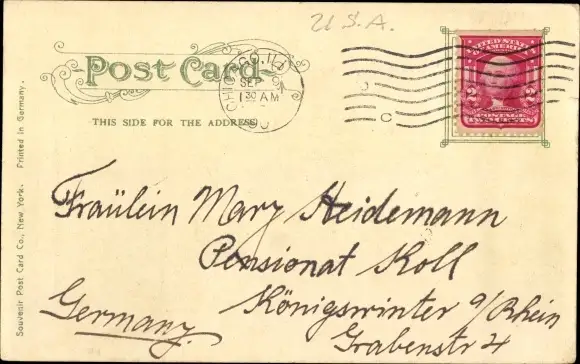 U.S.A.
Post Card
THIS SIDE FOR THE ADDRESS
CHICAGO, ILL
SEP
1 30 AM
C
UNITED STATES
OF AMERICA
2 2
POSTAGE
TWO CENTS
Fräulein Mary Heidemann
Pensionat Koll
Königswinter a/Rhein
Grabenstr 4
Germany.
Souvenir Post Card Co., New York. Printed in Germany.